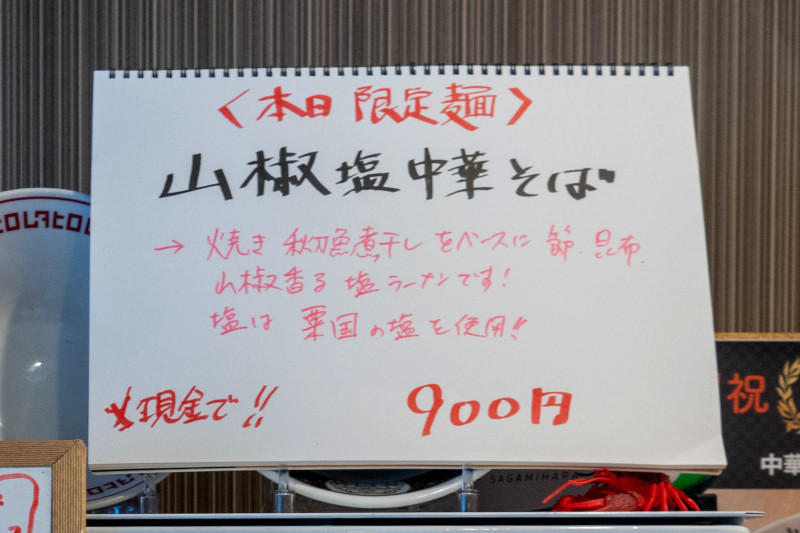 〈本日 限定麺〉
山椒塩中華そば
→ 焼き 秋刀魚煮干しをベースに 節.昆布.
山椒香る 塩ラーメンです!
塩は 粟国の塩を使用!!
現金で!!
900円
祝
中華
SAGAMIHARA